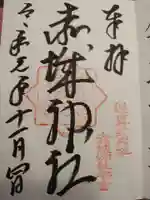 奉拝
赤城神社
令和元年十一月四日